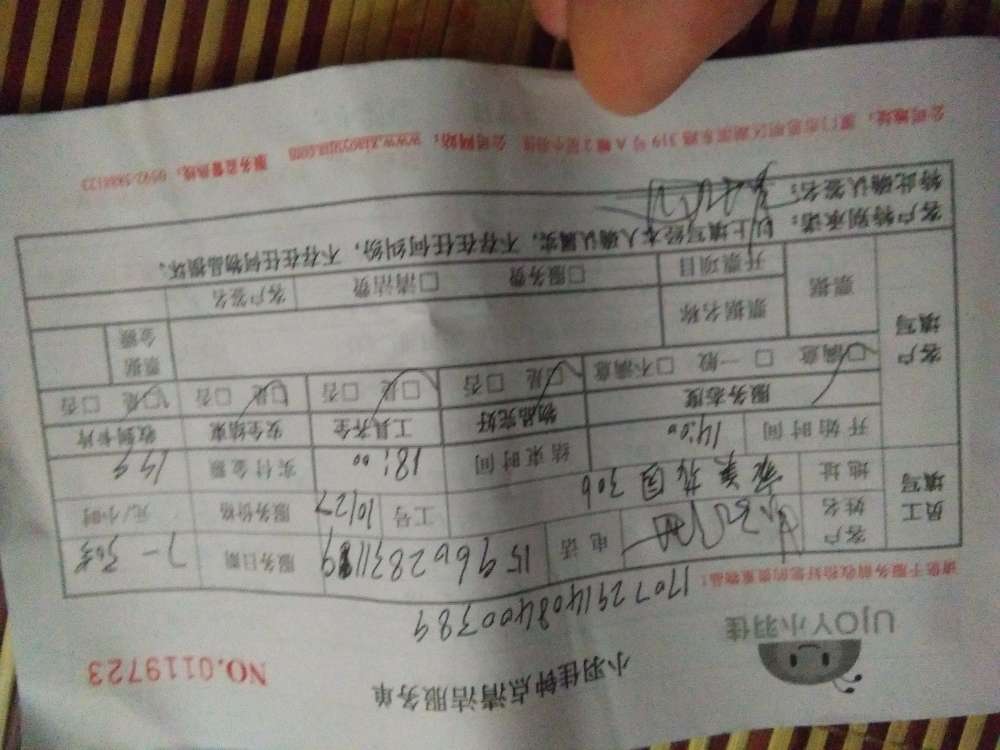 小羽佳钟点清洁服务单
NO.0119723
UjOY小羽佳
170729140840038９
请您于服务前收拾好您的贵重物品！
员工填写
客户姓名
电话
服务日期 7-30
地址 306
工号 10127
服务价格 元/小时
开始时间 14:00
结束时间 18:00
实付金额 149
客户填写
服务态度 物品完好 工具齐全 安全结束 收到卡片
□满意 □一般 □不满意 □是 □否 □是 □否 □是 □否 □是 □否
票据
票据名称
票据金额
开票项目 □服务费 □清洁费 客户签名
客户特别承诺： 以上填写经本人确认属实，不存在任何纠纷，不存在任何物品损坏。
特此确认签名：
公司地址：厦门市思明区湖滨东路319号A幢2层小羽佳 公司网站：www.xiaoyujia.com 服务监督热线：0592-5888123